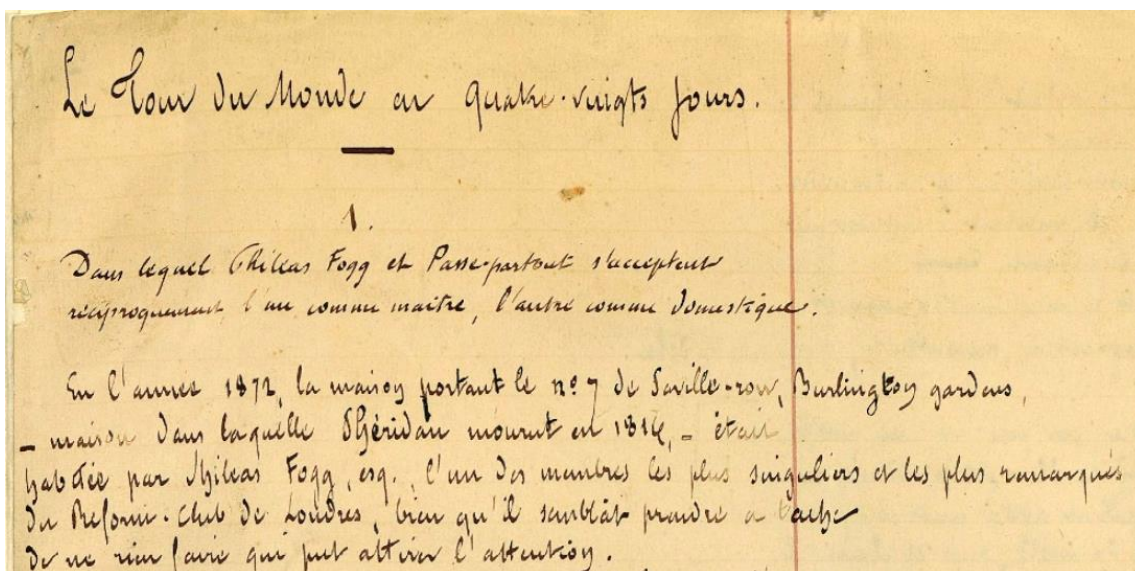 Le Tour du Monde en quatre-vingts jours.
1.
Dans lequel Phileas Fogg et Passe-partout s'acceptent
réciproquement l'un comme maître, l'autre comme domestique.
En l'année 1872, la maison portant le nº 7 de Saville-row, Burlington gardens,
– maison dans laquelle Shéridan mourut en 1816, – était
habitée par Phileas Fogg, esq., l'un des membres les plus singuliers et les plus remarqués
du Reform-Club de Londres, bien qu'il semblât prendre à tâche
de ne rien faire qui put attirer l'attention.